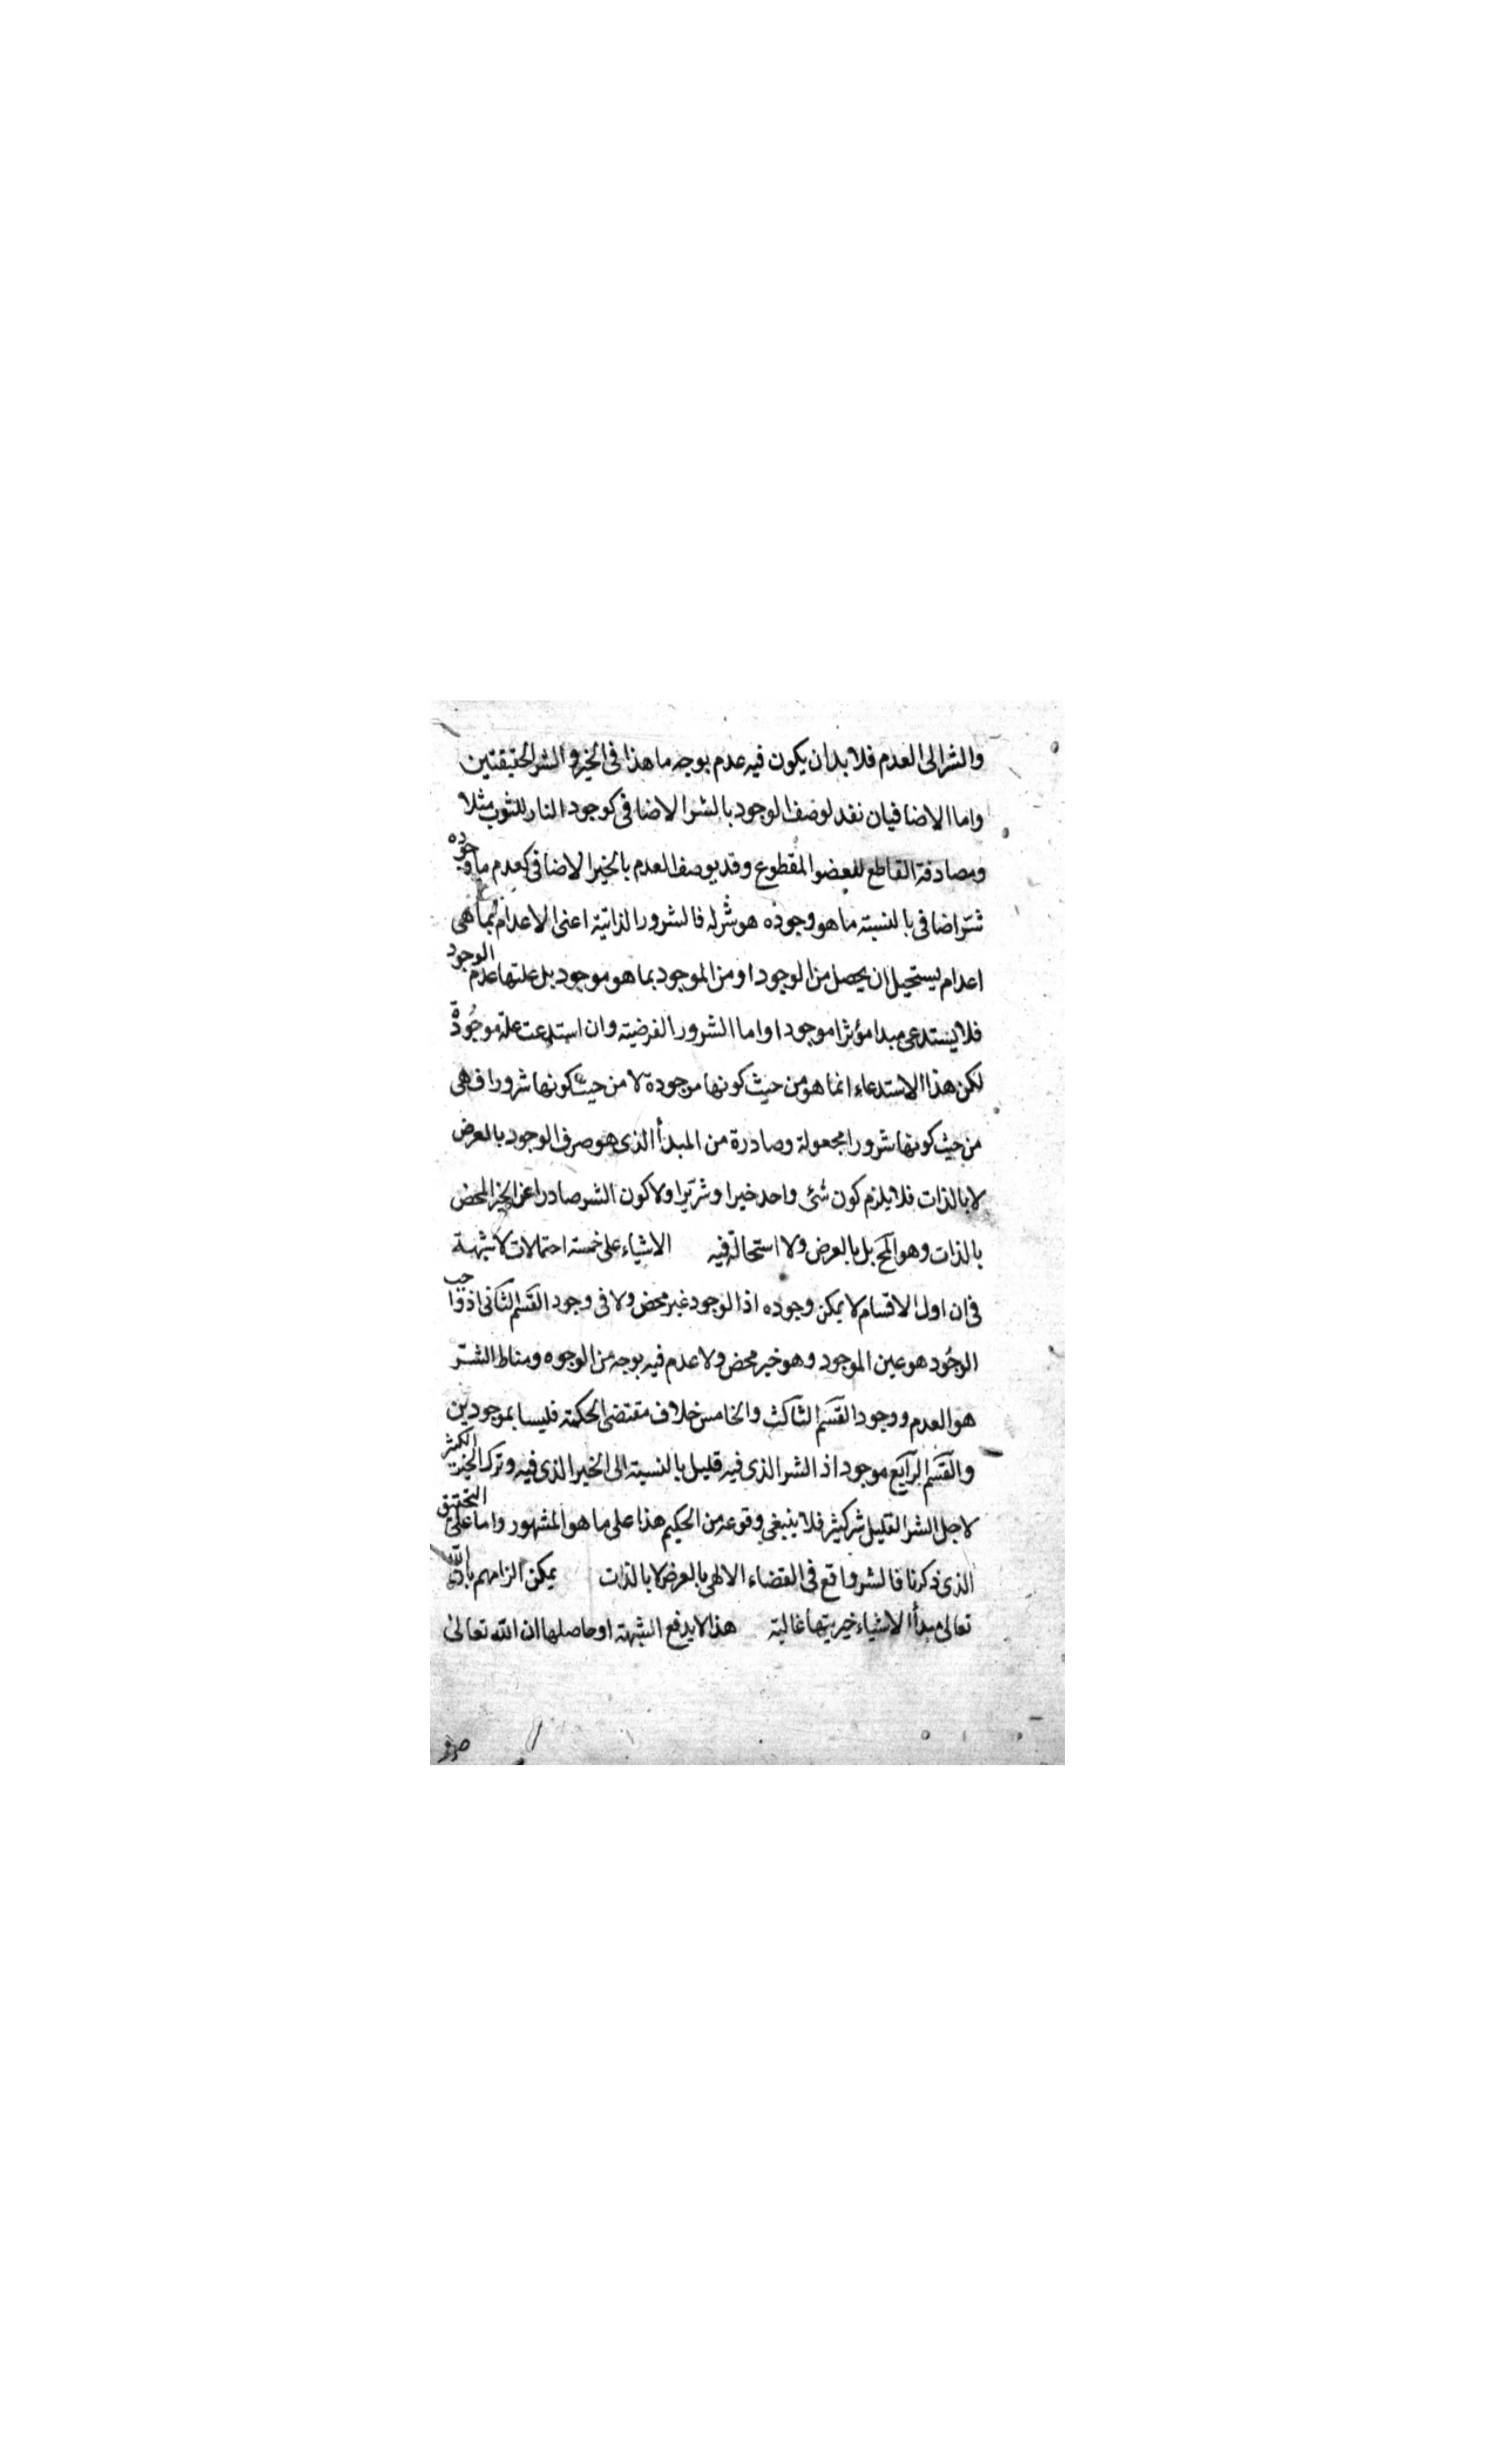 والشر الى العدم فلا بد ان يكون فيه عدم بوجه ما هذا فى الخير والشر الحقيقتين
واما الاضافيان فقد يوصف الوجود بالشر الاضافى كوجود النار للثوب مثلا
ومصادفة القاطع للعضو المقطوع وقد يوصف العدم بالخير الاضافى كعدم ما وجوده
شر اضافى بالنسبة ما هو وجوده هو شر له فالشرور الذاتية اعنى الاعدام بما هى
اعدام يستحيل ان يحصل من الوجود او من الموجود بما هو موجود بل علتها عدم الوجود
فلا يستدعى مبدا مؤثرا موجودا واما الشرور العرضية وان استدعت علة موجودة
لكن هذا الاستدعاء انما هو من حيث كونها موجودة لا من حيث كونها شرورا فهى
من حيث كونها شرورا مجعولة وصادرة من المبدأ الذى هو صرف الوجود بالعرض
لا بالذات فلا يلزم كون شئ واحد خيرا وشريرا ولا كون الشر صادرا عن الخير المحض
بالذات وهو المح بل بالعرض ولا استحالة فيه الاشياء على خمسة احتمالات لا شبهة
فى ان اول الاقسام لا يمكن وجوده اذ الوجود غير محض ولا فى وجود القسم الثانى اذ واجب
الوجود هو عين الموجود وهو خير محض ولا عدم فيه بوجه من الوجوه ومناط الشر
هو العدم ووجود القسم الثالث والخامس خلاف مقتضى الحكمة فليسا بموجودين
والقسم الرابع موجود اذ الشر الذى فيه قليل بالنسبة الى الخير الذى فيه وترك الخير الكثير
لاجل الشر القليل شر كثير فلا ينبغى وقوعه من الحكيم هذا على ما هو المشهور واما على التحقيق
الذى ذكرنا فالشر واقع فى القضاء الالهى بالعرض لا بالذات يمكن الزامهم بان الله
تعالى مبدأ الاشياء خيريتها غالبة هذا لا يدفع الشبهة او حاصلها ان الله تعالى